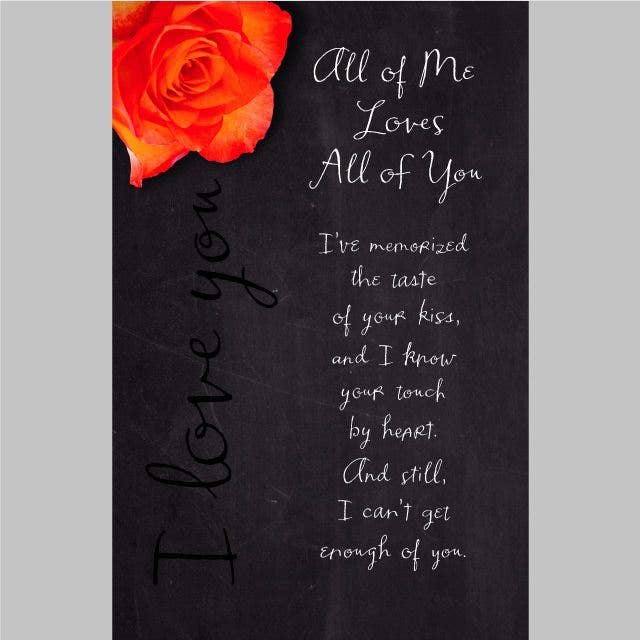 All of Me
Loves
All of You
I've memorized
the taste
of your kiss,
and I know
your touch
by heart.
And still,
I can't get
enough of you.
I love you